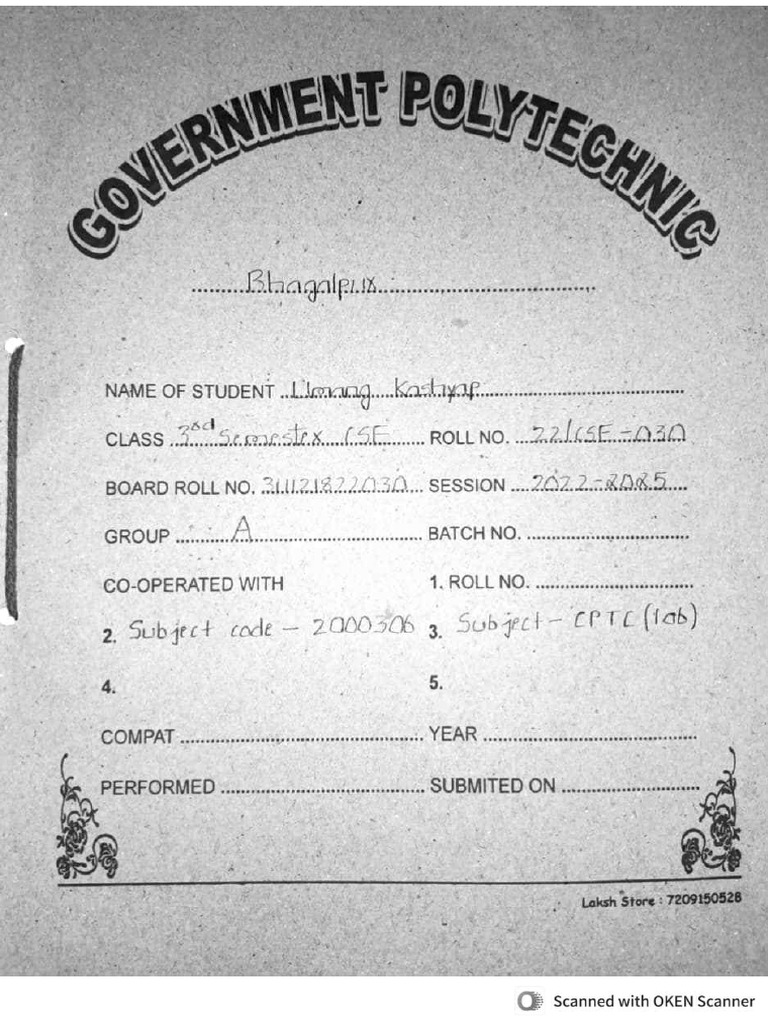 GOVERNMENT POLYTECHNIC
Bhagalpur
NAME OF STUDENT Umang Kashyap
CLASS 3rd Semester CSE ROLL NO. 22/CSE-030
BOARD ROLL NO. 311121822030 SESSION 2022-2025
GROUP A BATCH NO.
CO-OPERATED WITH 1. ROLL NO.
2. Subject code - 2000306 3. Subject - CPTC (lab)
4. 5.
COMPAT YEAR
PERFORMED SUBMITED ON
Laksh Store : 7209150528
Scanned with OKEN Scanner